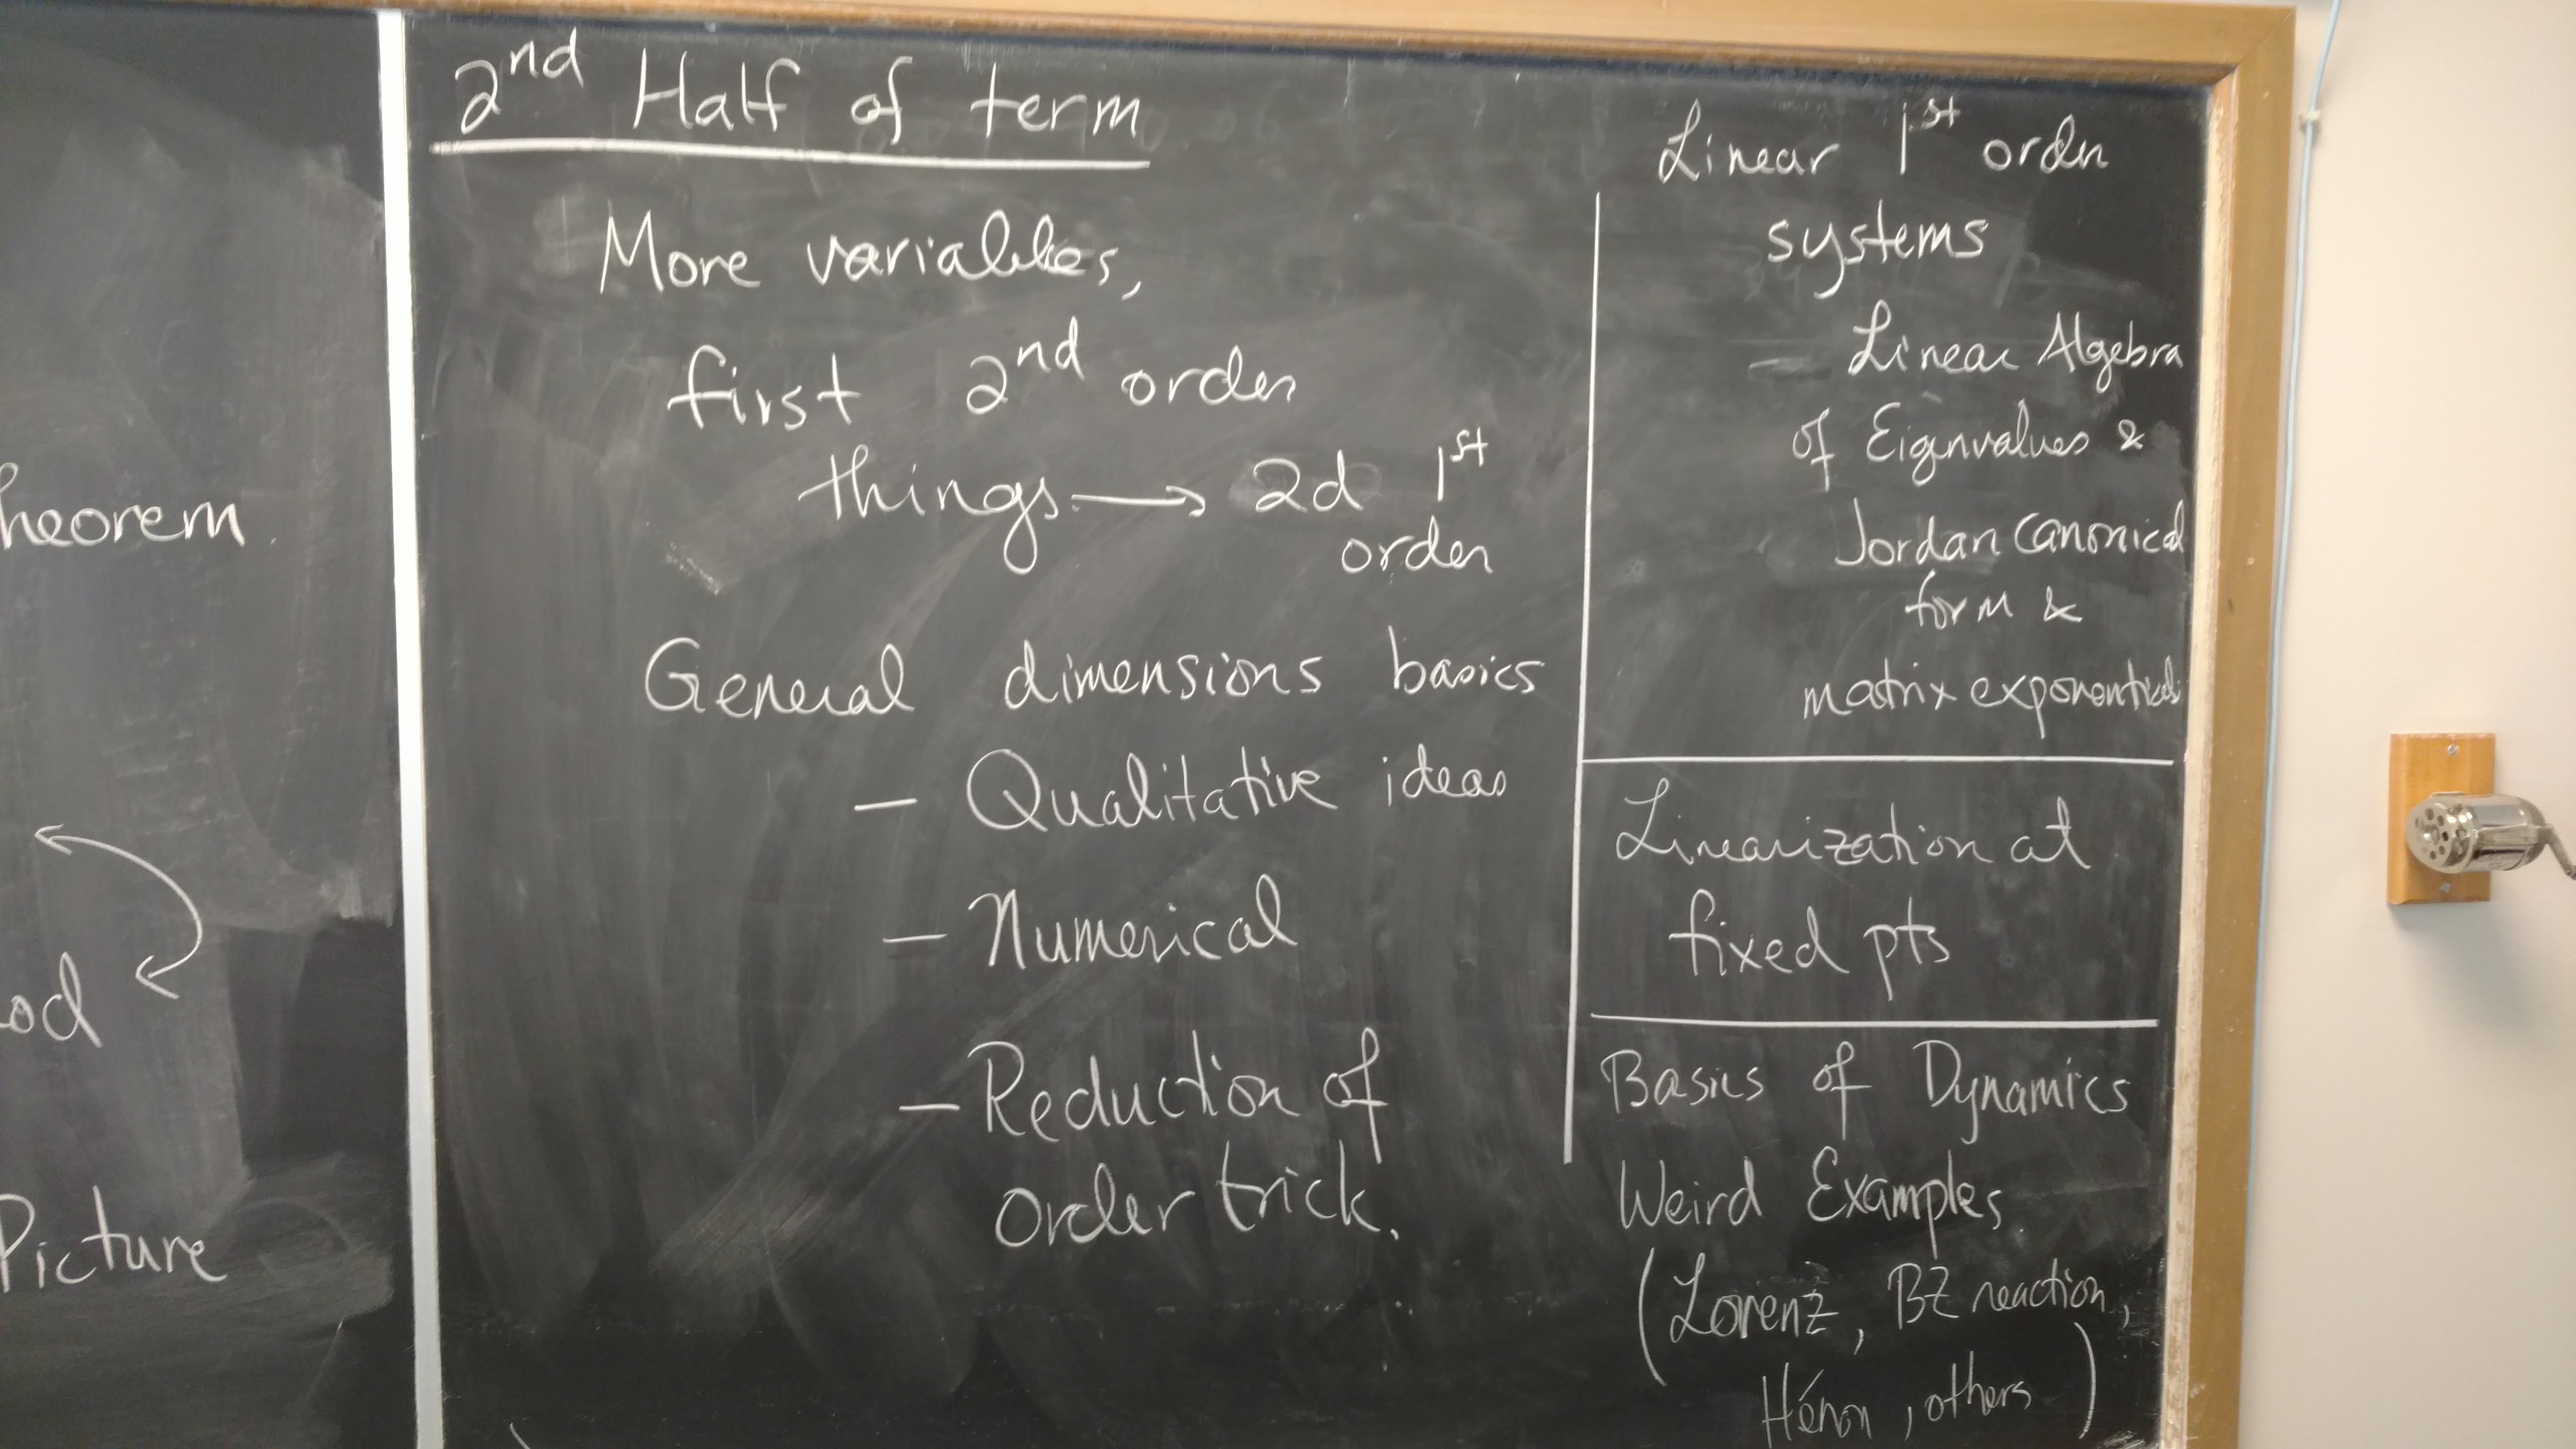 heorem
od
Picture
2nd Half of term
More variables,
first 2nd order
things → 2d 1st
order
General dimensions basics
— Qualitative ideas
— Numerical
— Reduction of
order trick.
Linear 1st order
systems
— Linear Algebra
of Eigenvalues &
Jordan Canonical
form &
matrix exponentials
Linearization at
fixed pts
Basics of Dynamics
Weird Examples
(Lorenz, BZ reaction,
Hénon, others)